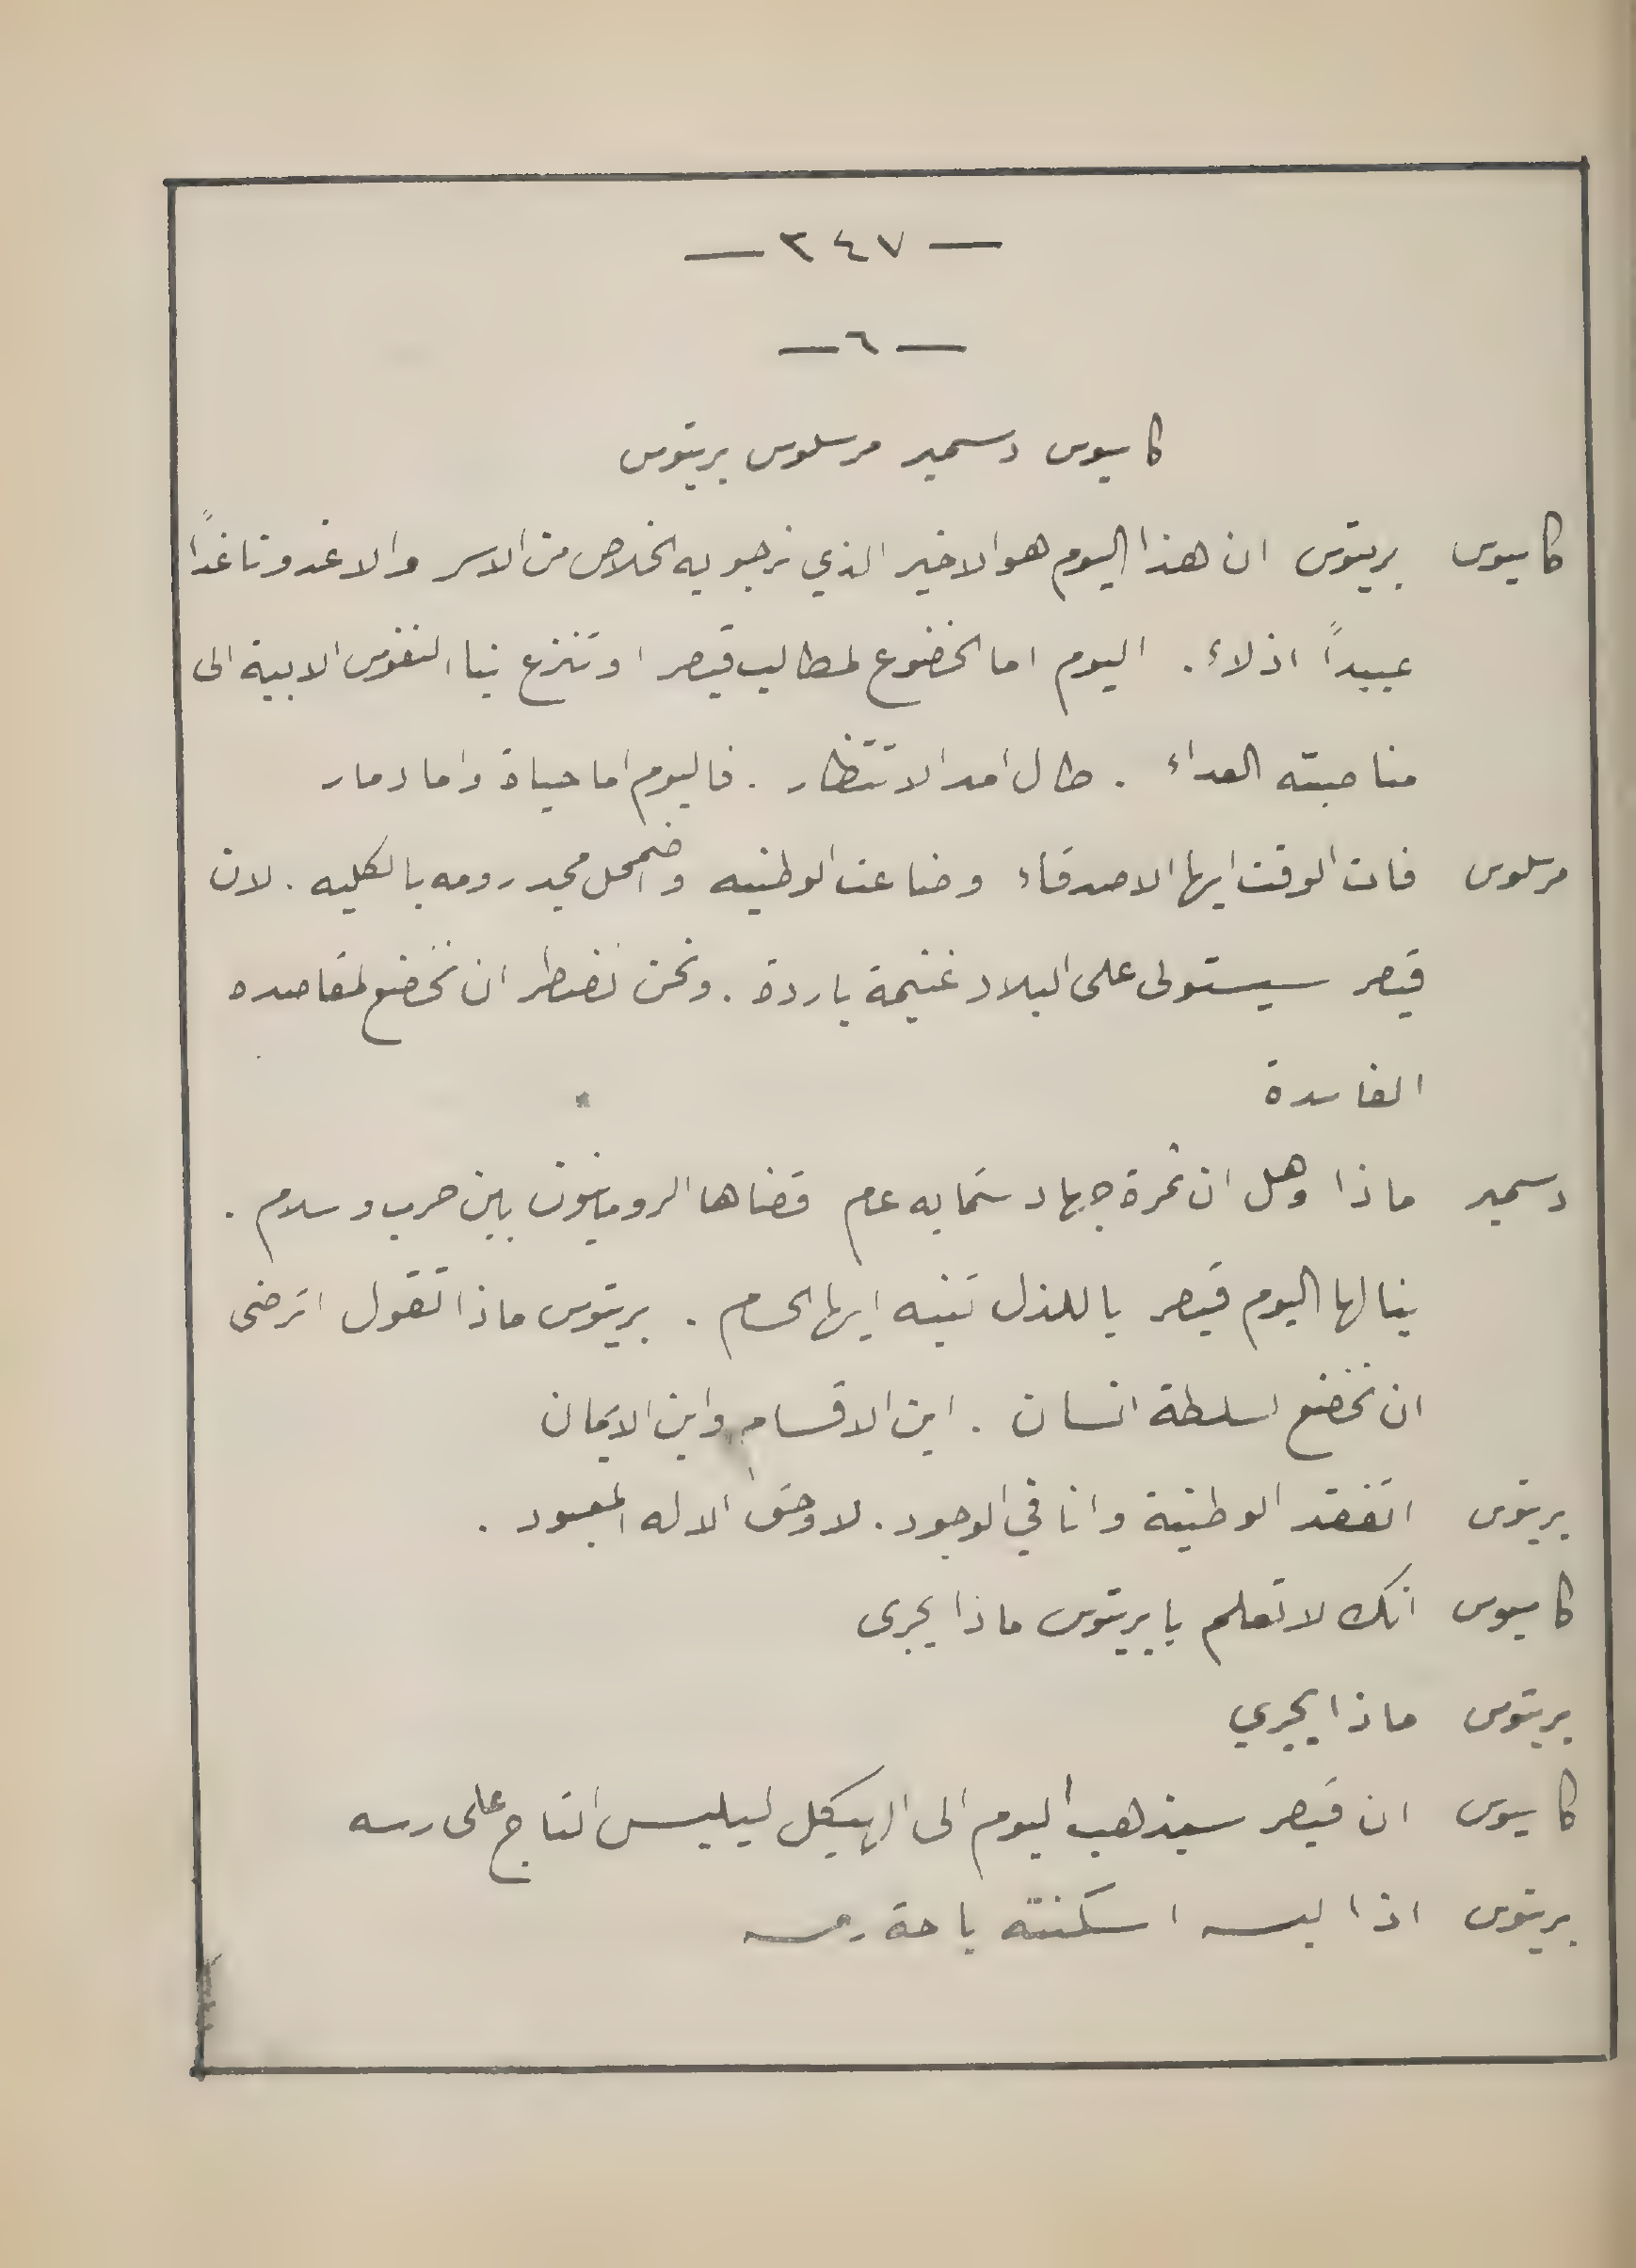 — ٣٤٧ —
— ٦ —
كاسيوس دسمير مرسلوس بريتوس
كاسيوس بريتوس ان هذا اليوم هو الاخير الذي نرجو به الخلاص من الاسر والا غدونا غداً
عبيداً اذلاء . اليوم اما الخضوع لمطاليب قيصر او تنزع بنا النفوس الابية الى
مناصبته العداء . طال امد الانتظار . فاليوم اما حياة واما دمار
مرسلوس فات الوقت ايها الاصدقاء وضاعت الوطنيه واضمحل مجد رومه بالكليه . لان
قيصر سيستولى على البلاد غنيمة باردة . ونحن نضطر ان نخضع لمقاصده
الفاسدة
دسمير ماذا وهل ان ثمرة جهاد ستمايه عام قضاها الرومانيون بين حرب وسلام .
ينالها اليوم قيصر ياللذل تنبه ايها الحسام . بريتوس ماذا تقول اترضى
ان نخضع لسلطة انسان . اين الاقسام واين الايمان
بريتوس اتفقد الوطنية وانا في الوجود . لا وحق الاله المعبود .
كاسيوس انك لا تعلم يا بريتوس ماذا يجرى
بريتوس ماذا يجري
كاسيوس ان قيصر سيذهب اليوم الى الهيكل ليلبس التاج على رسه
بريتوس اذا لبسه اسكنته باحة رمسه